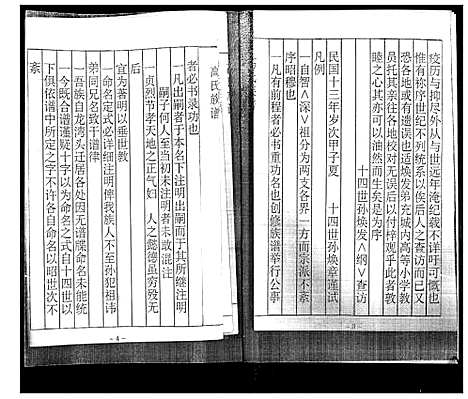 疫历与地尽外从与世远年淹纪载不详吁可慨也
惟有祢序世纪不列统系以俟后人之查访而已又
恐各地或有遗误也适焕发弟充城内高等小学教
员托其在各地校对无误后以付梓观乎此者敦
睦之心其亦可以油然而生矣是为序
十四世孙焕章∧纲∨查访
民国十三年岁次甲子夏　十四世孙焕章谨试
凡例
一自智∧深∨祖分为两支各界一方而宗派不紊
序昭穆也
一凡有前程者必书重功名也创修族谱举行公事
- 3 -
高氏族谱
者必书录功也
一凡出嗣者于本名下注明出嗣而于其所继注明
嗣子何人至当初未注明者未敢混注
一贞烈节孝天地之正气妇人之懿德虽穷殁无
后
宜为著明以垂世教
一命名定式必详细注明俾我族人不至孙犯祖讳
弟同兄名致干谱律
一吾族自龙湾头迁居各处因无谱牒命名未能统
一今既合谱谨疑十字以为命名之式自十四世以
下俱依谱中所定之字不许各自命名以昭世次不
紊
- 4 -